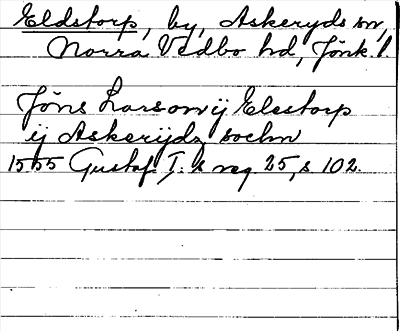 Eldstorp, by, Askeryds sn,
Norra Vedbo hd, Jönk. l
Jöns Larson ij Elestorp
ij Askerijdz sochn
1555 Gustaf I:s reg 25, s 102.